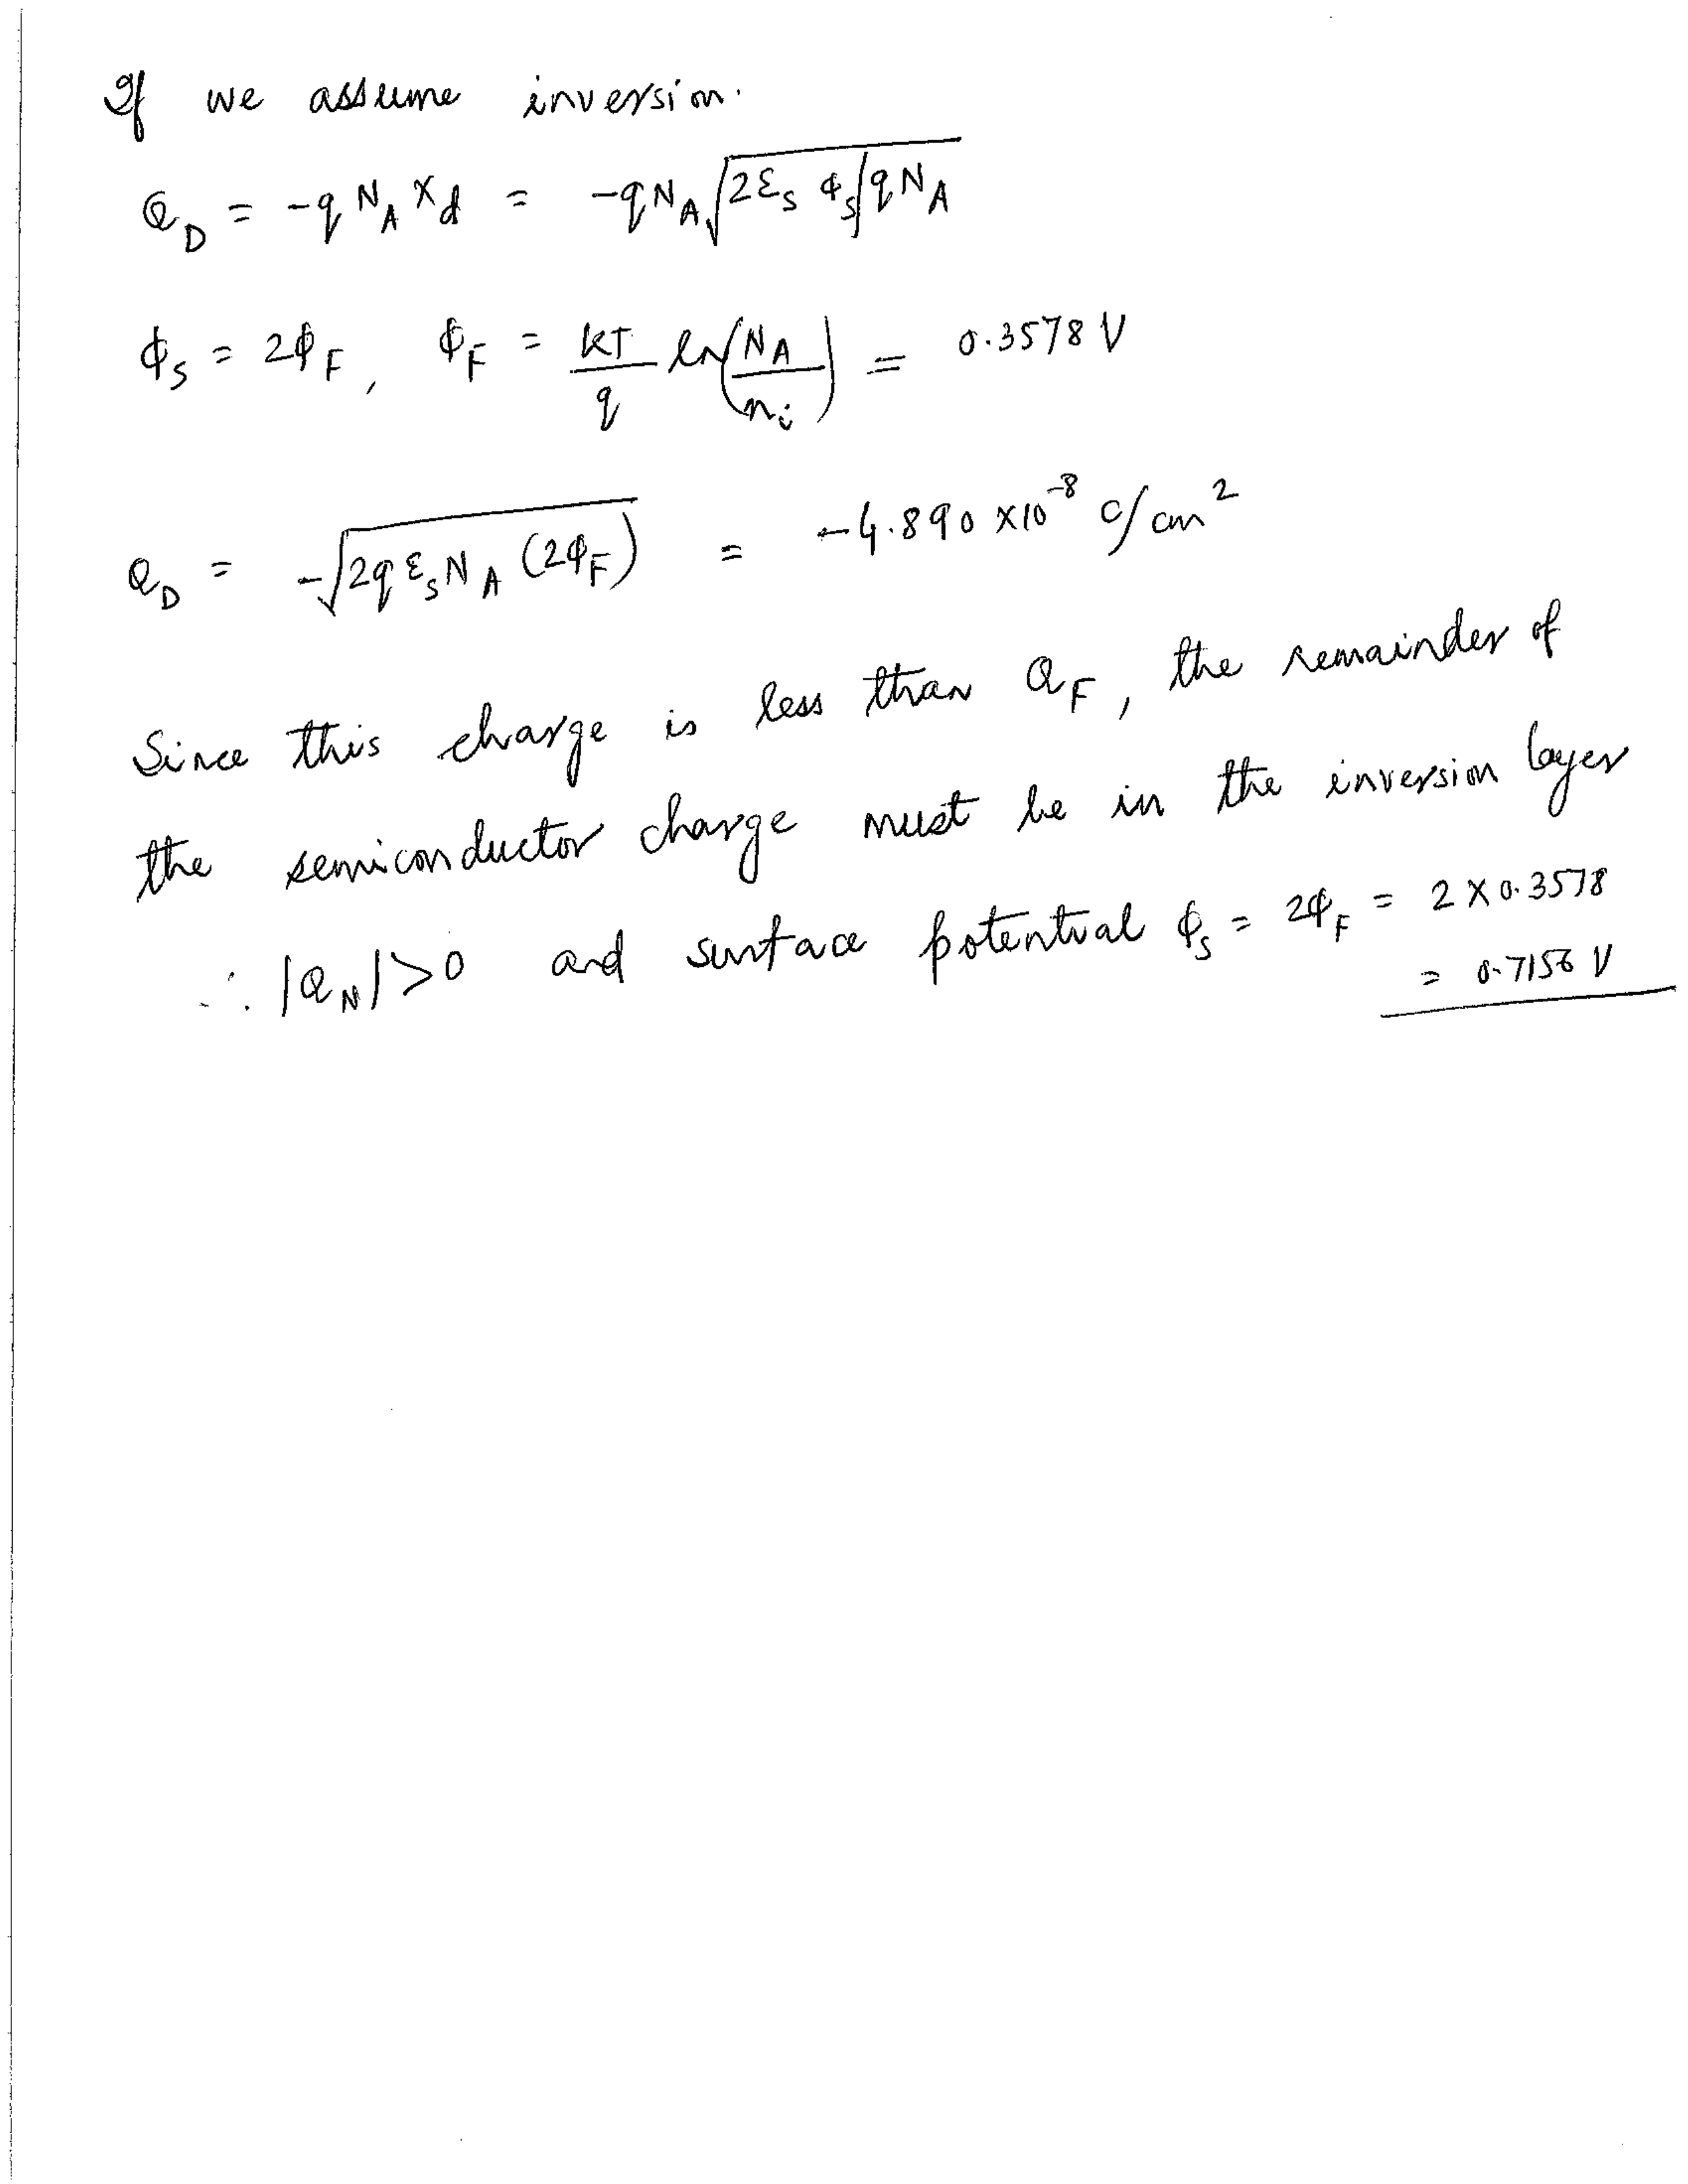 If we assume inversion.
Q_D = -q N_A X_d = -q N_A √(2ε_s ϕ_s/q N_A)
ϕ_s = 2ϕ_F, ϕ_F = kT/q ln(N_A/n_i) = 0.3578 V
Q_D = -√(2q ε_s N_A (2ϕ_F)) = -4.890 x10^-8 C/cm^2
Since this charge is less than Q_F, the remainder of
the semiconductor charge must be in the inversion layer
∴ |Q_N| > 0 and surface potential ϕ_s = 2ϕ_F = 2 x 0.3578
= 0.7156 V